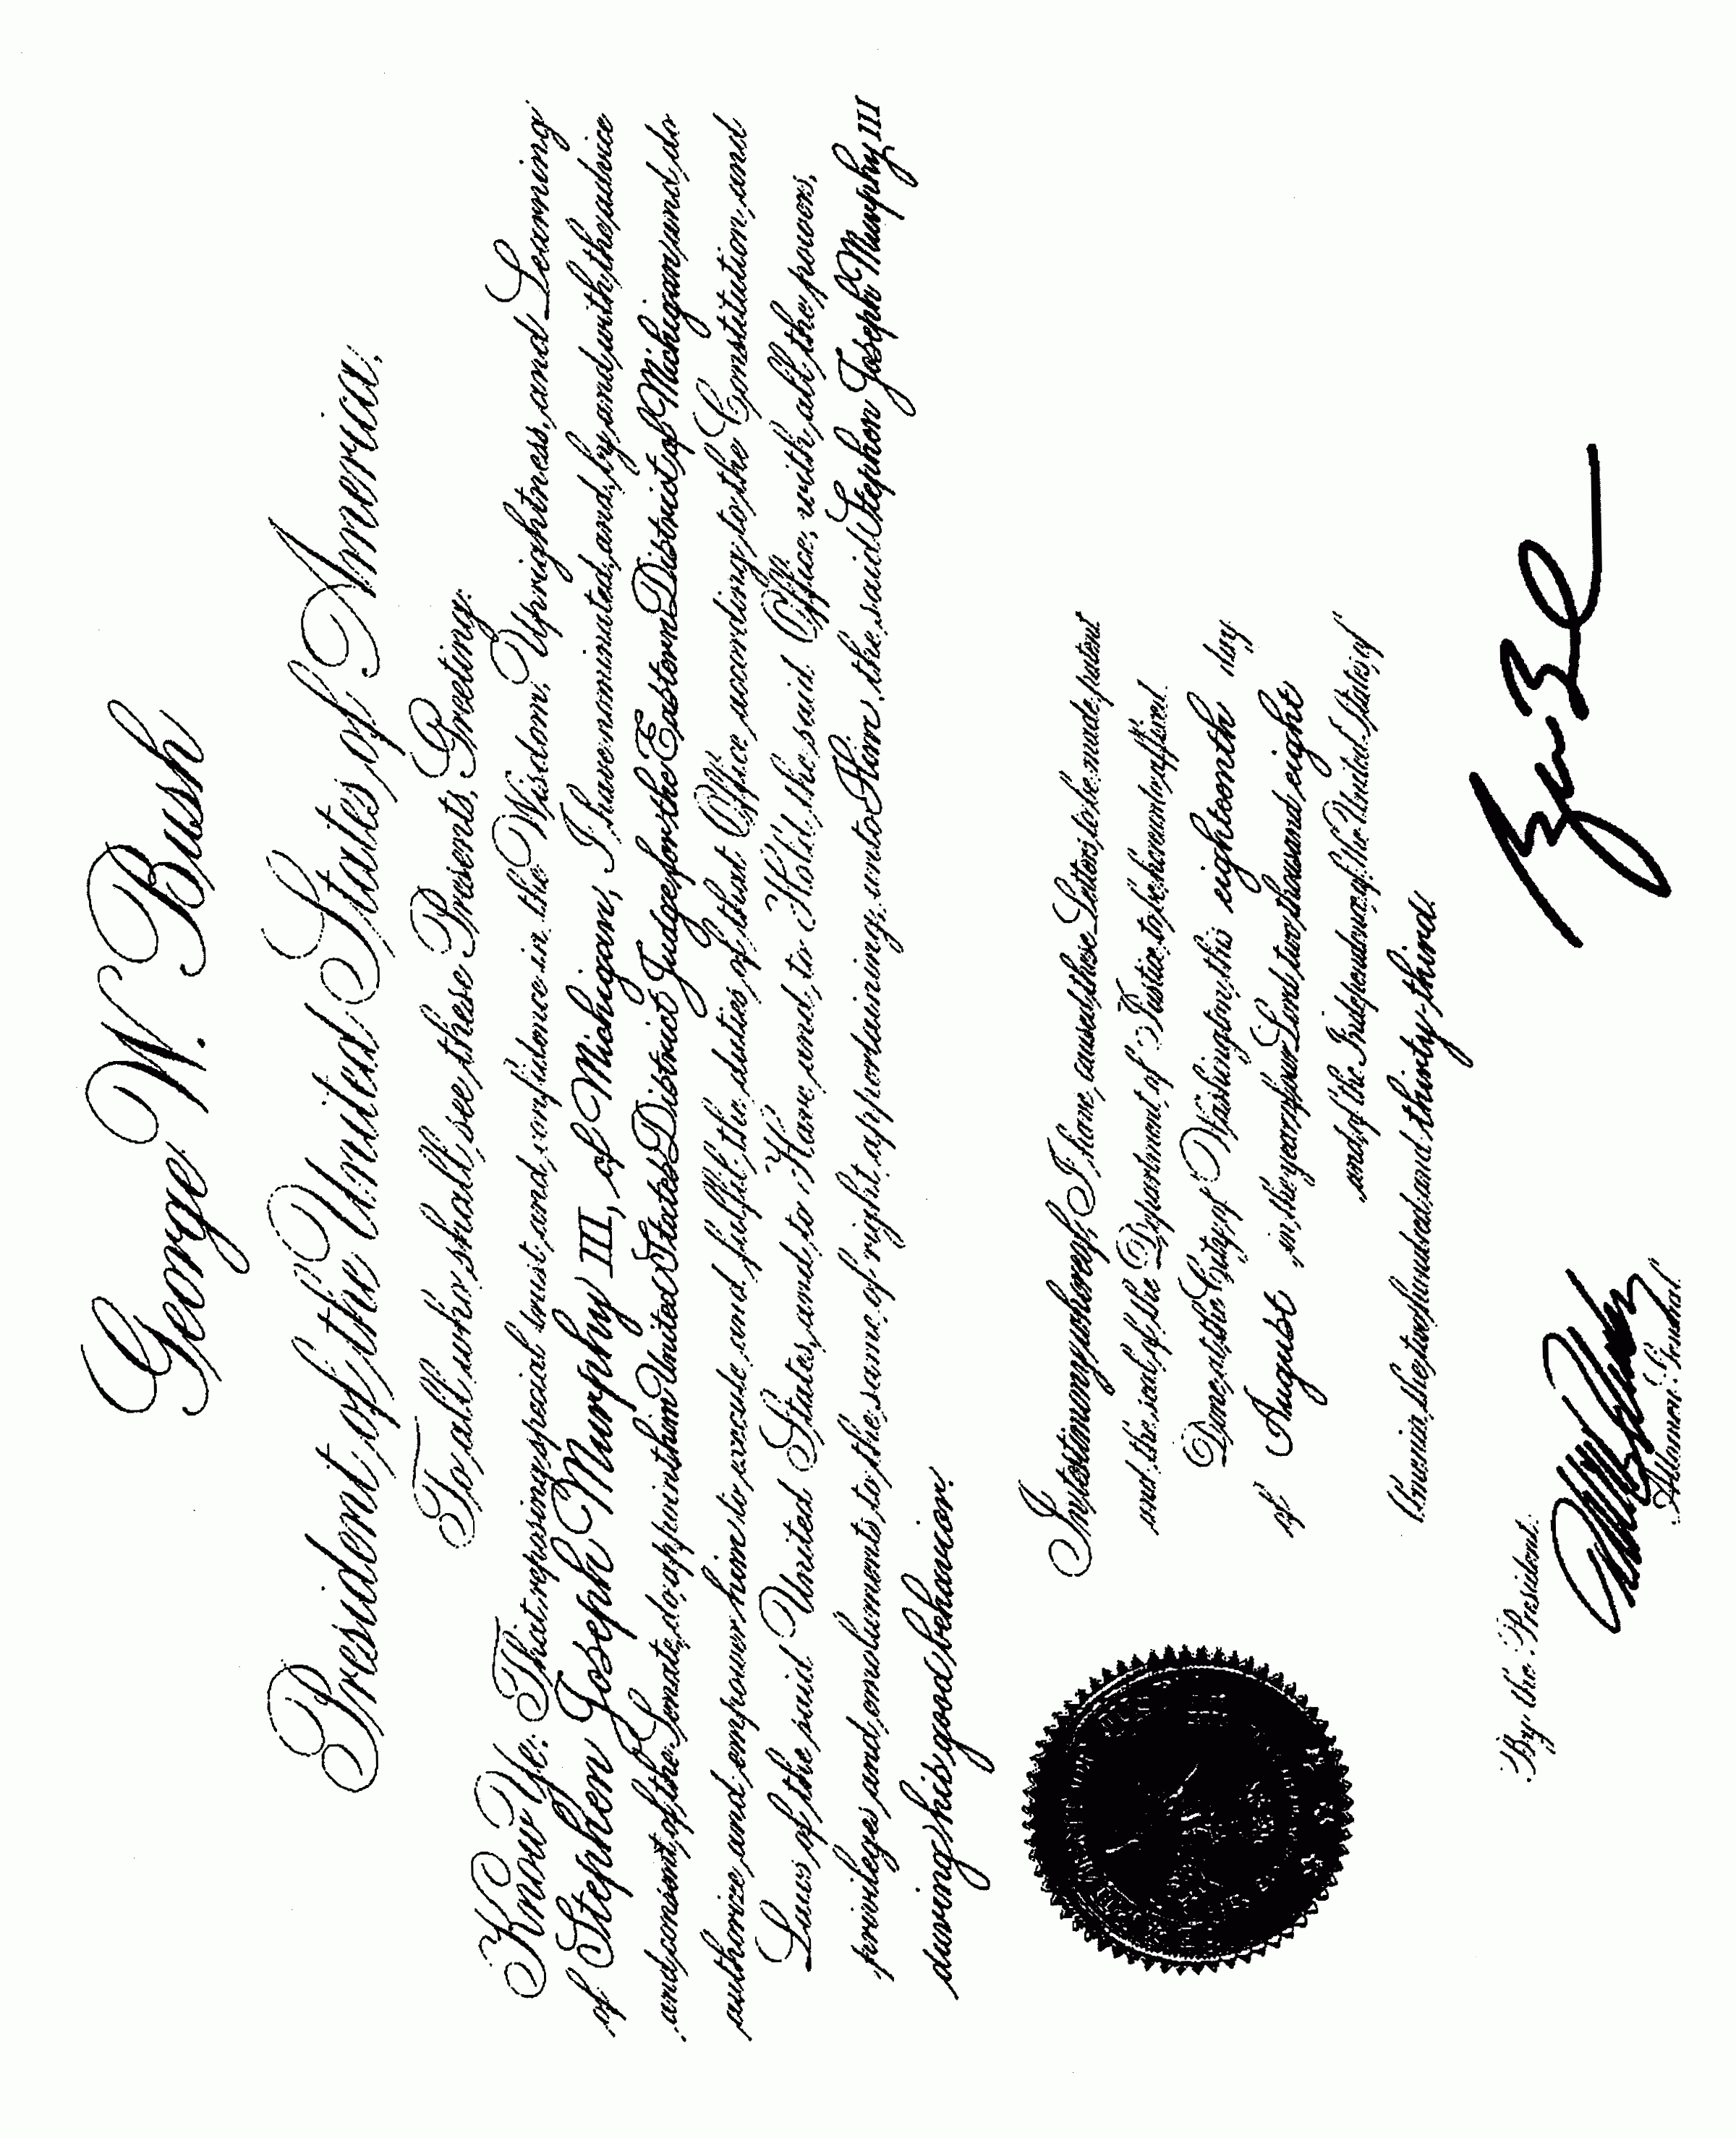 George W. Bush
President of the United States of America,
To all who shall see these Presents, Greeting:
Know Ye: That reposing special trust and confidence in the Wisdom, Uprightness, and Learning
of Stephen Joseph Murphy III, of Michigan, I have nominated, and, by and with the advice
and consent of the Senate, do appoint him United States District Judge for the Eastern District of Michigan and do
authorize and empower him to execute and fulfil the duties of that Office according to the Constitution and
Laws of the said United States, and to Have and to Hold the said Office, with all the powers,
privileges and emoluments to the same of right appertaining, unto Him, the said Stephen Joseph Murphy III
during his good behavior.
In testimony whereof, I have caused these Letters to be made patent
and the seal of the Department of Justice to be hereunto affixed.
Done at the City of Washington this eighteenth day
of August in the year of our Lord two thousand eight
and of the Independence of the United States of
America the two hundred and thirty-third.
By the President:
Attorney General.